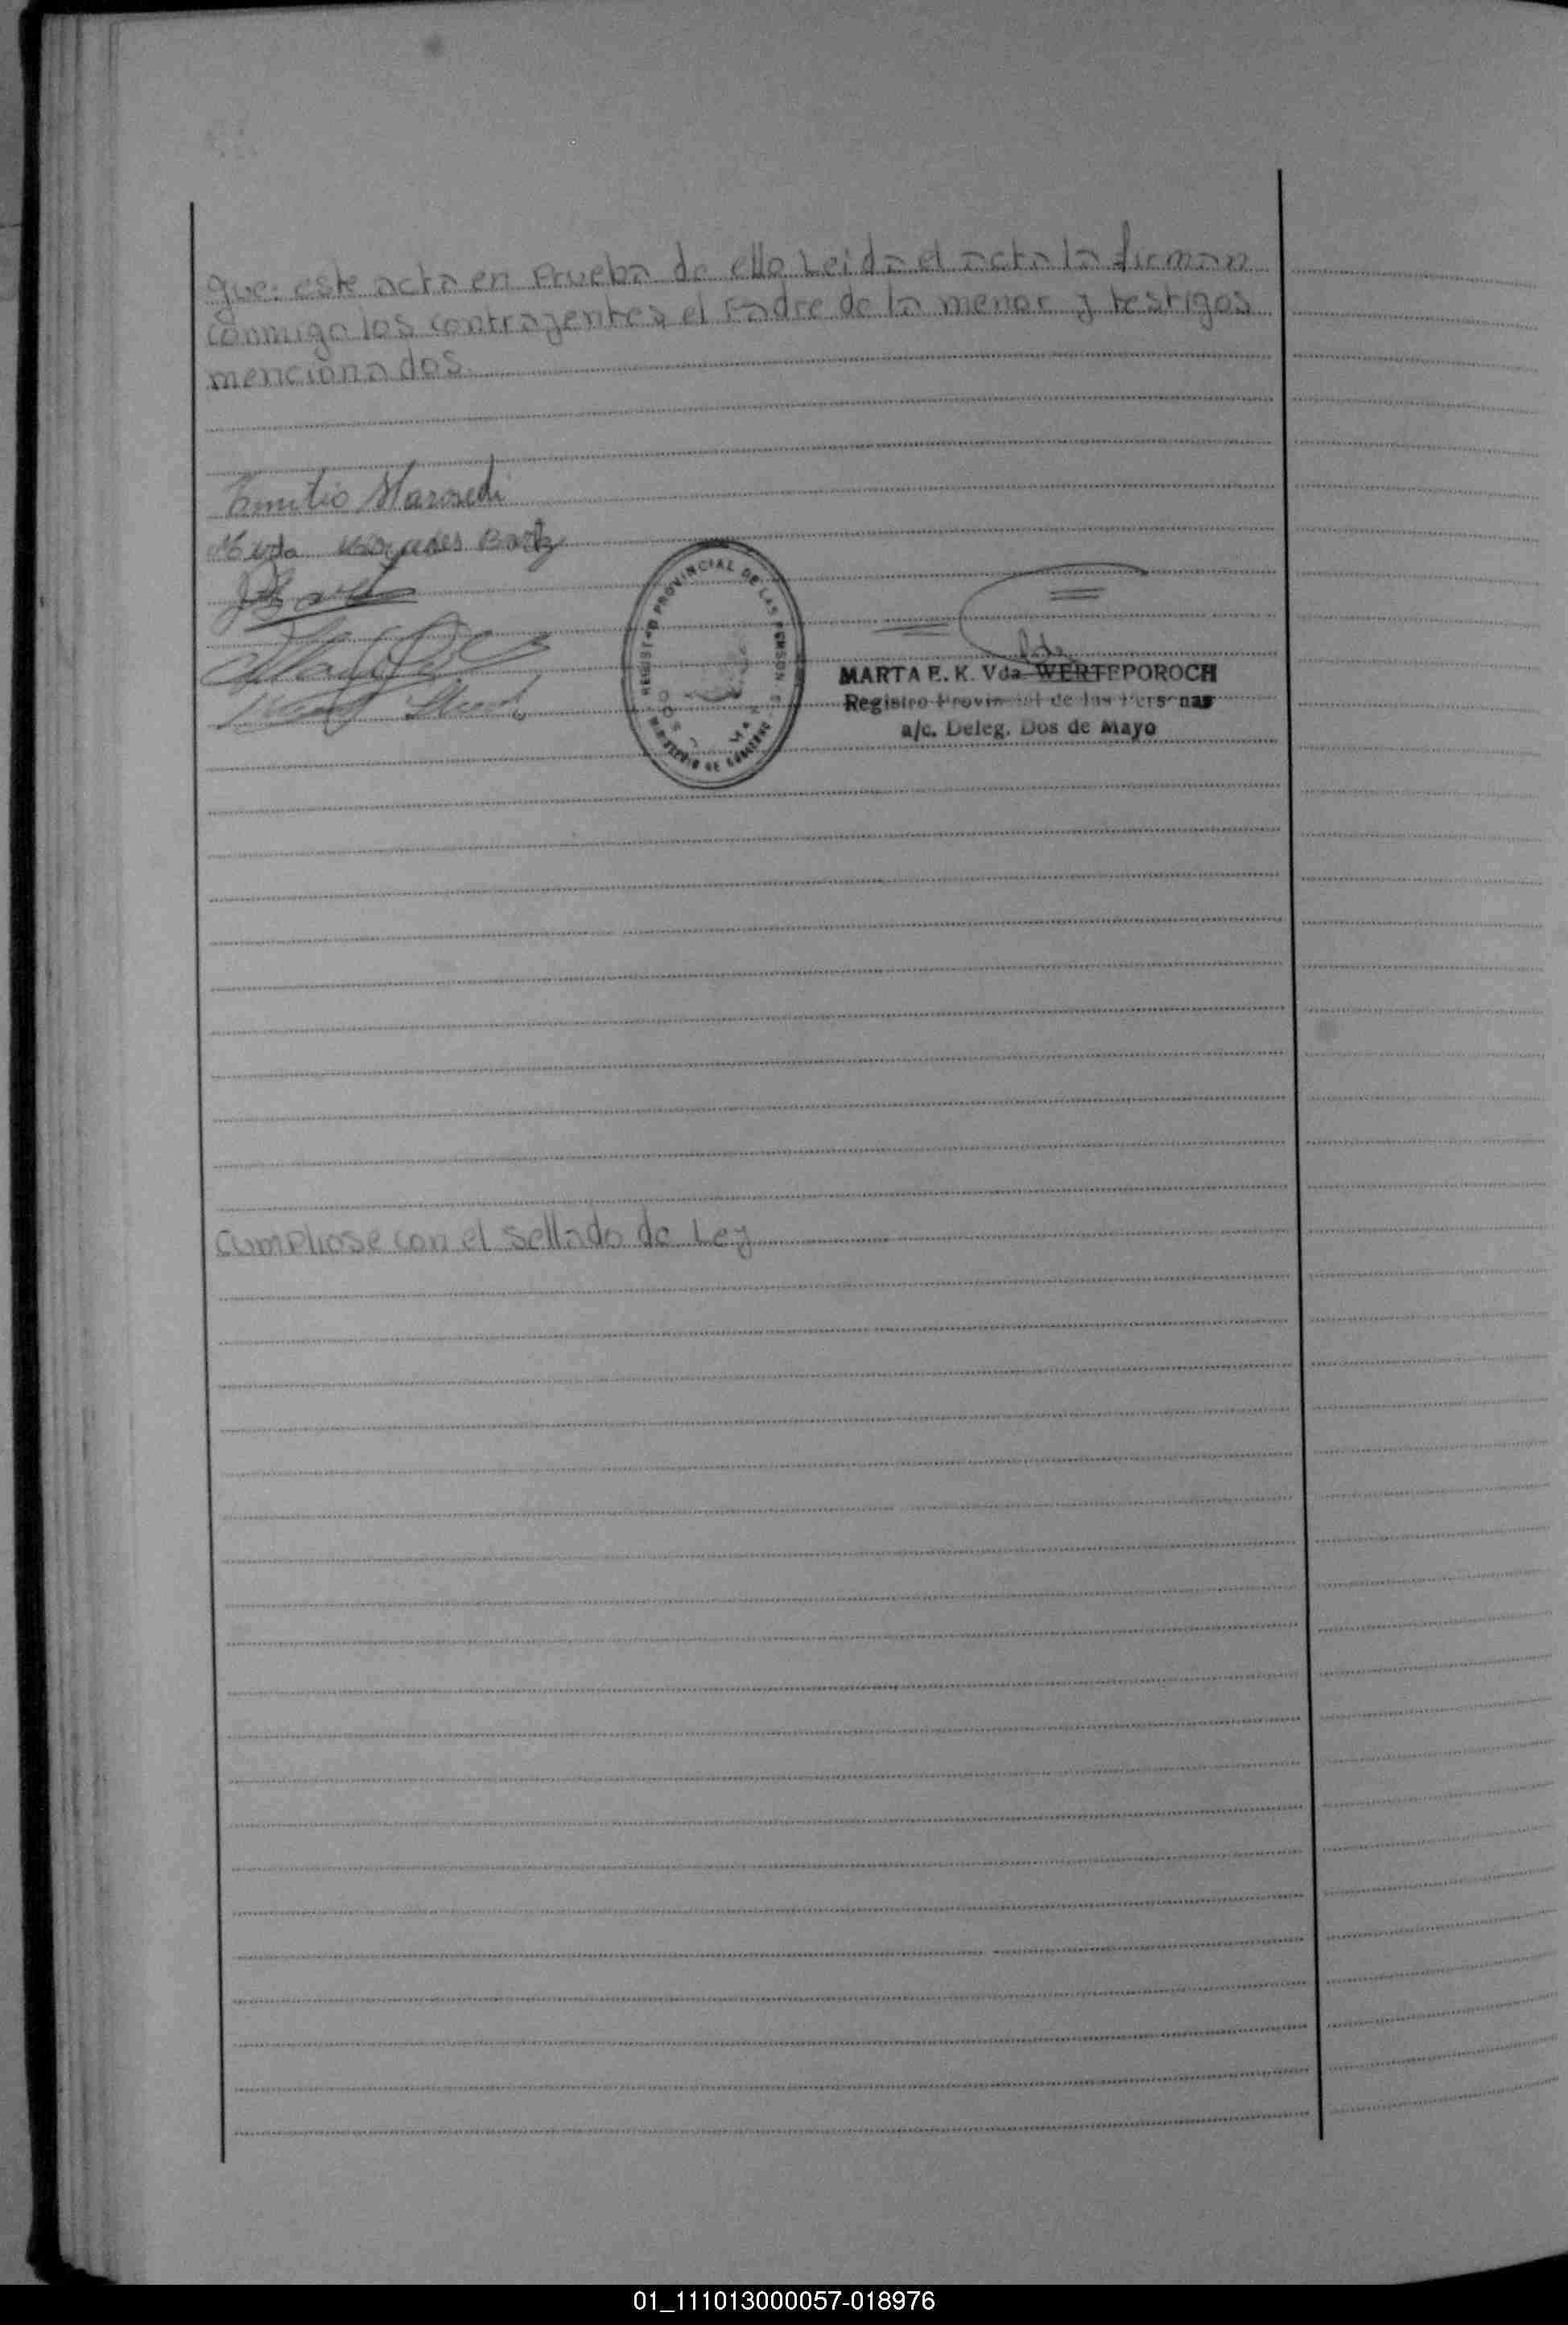 que: este acta en Prueba de ello Leida el acta la firman
conmigo los contrayentes el Padre de la menor y testigos
mencionados.
Emilio
REGISTRO PROVINCIAL DE LAS PERSONAS
MINISTERIO DE GOBIERNO
MARTA E. K. Vda WERTEPOROCH
Registro Provincial de las Personas
a/c. Deleg. Dos de Mayo
Cumpliose con el sellado de Ley
01_111013000057-018976